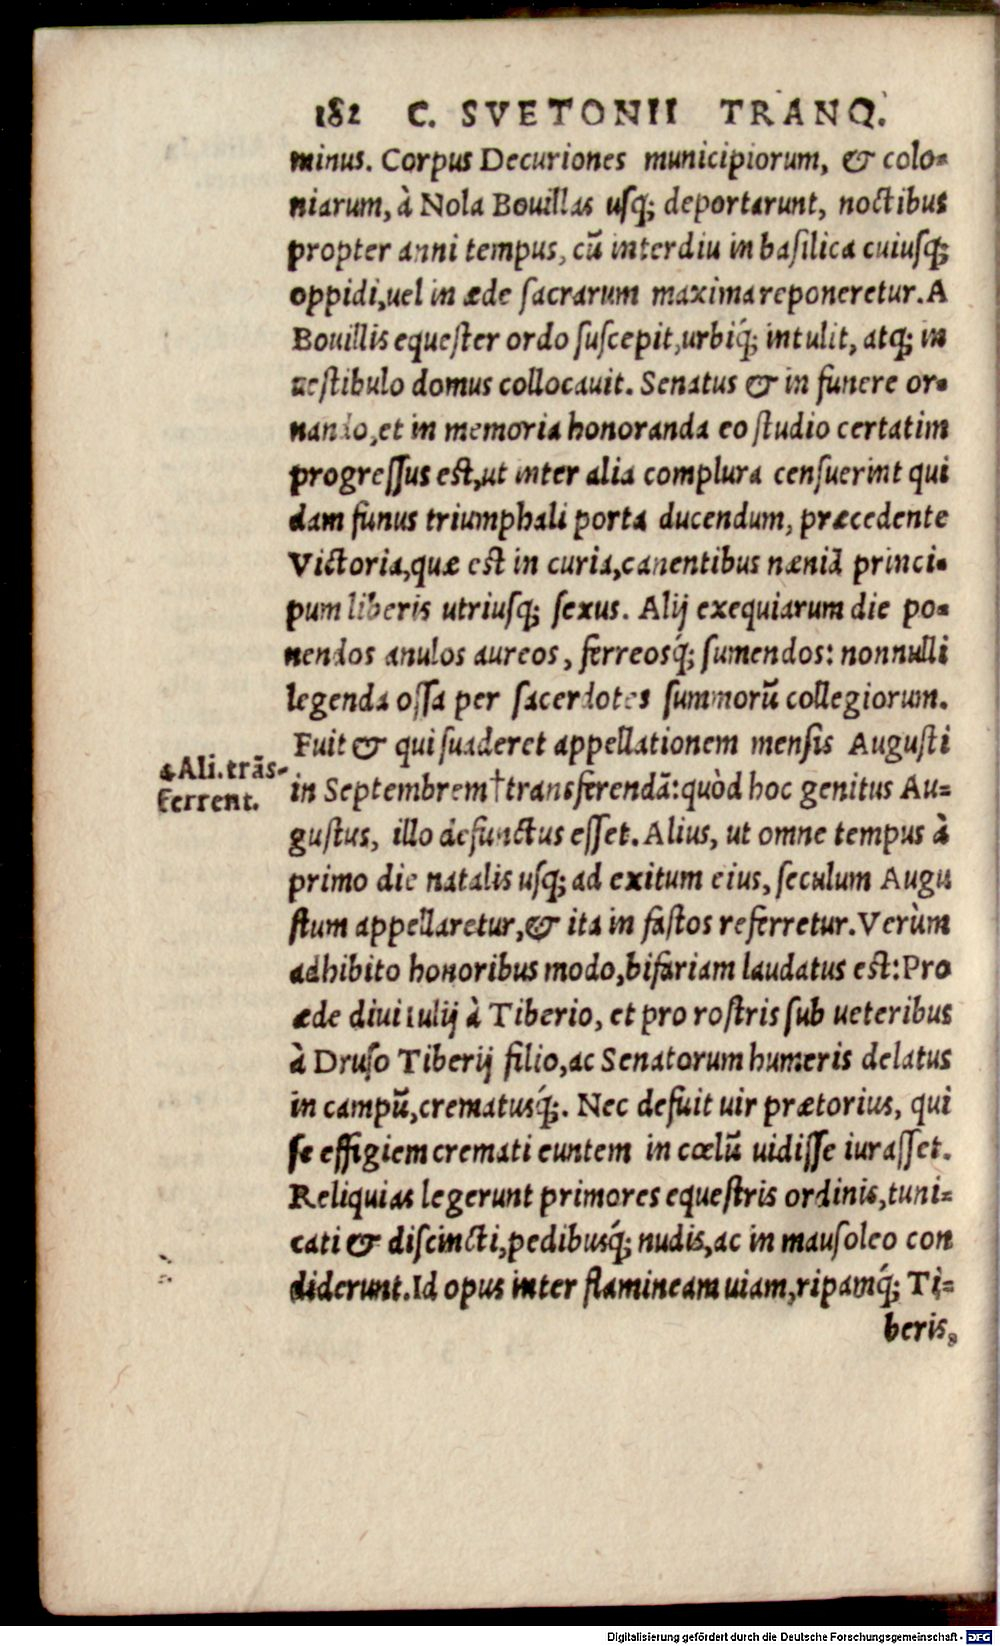 182 C. SVETONII TRANQ.
minus. Corpus Decuriones municipiorum, & colo-
niarum, à Nola Bouillas usq; deportarunt, noctibus
propter anni tempus, cū interdiu in basilica cuiusq;
oppidi, uel in æde sacrarum maxima reponeretur. A
Bouillis equester ordo suscepit, urbiq́; intulit, atq; in
uestibulo domus collocauit. Senatus & in funere or-
nando, et in memoria honoranda eo studio certatim
progressus est, ut inter alia complura censuerint qui
dam funus triumphali porta ducendum, præcedente
Victoria, quæ est in curia, canentibus næniā princi-
pum liberis utriusq; sexus. Alij exequiarum die po-
nendos anulos aureos, ferreosq́; sumendos: nonnulli
legenda ossa per sacerdotes summorū collegiorum.
Fuit & qui suaderet appellationem mensis Augusti
in Septembrem†transferendā: quòd hoc genitus Au-
gustus, illo defunctus esset. Alius, ut omne tempus à
primo die natalis usq; ad exitum eius, seculum Augu
stum appellaretur, & ita in fastos referretur. Verùm
adhibito honoribus modo, bifariam laudatus est: Pro
æde diui Iulij à Tiberio, et pro rostris sub ueteribus
à Druso Tiberij filio, ac Senatorum humeris delatus
in campū, crematusq́;. Nec defuit uir prætorius, qui
se effigiem cremati euntem in cœlū uidisse iurasset.
Reliquias legerunt primores equestris ordinis, tuni-
cati & discincti, pedibusq́; nudis, ac in mausoleo con
diderunt. Id opus inter flamineam uiam, ripamq́; Ti-
beris,
Ali. trās-
ferrent.
Digitalisierung gefördert durch die Deutsche Forschungsgemeinschaft - DFG